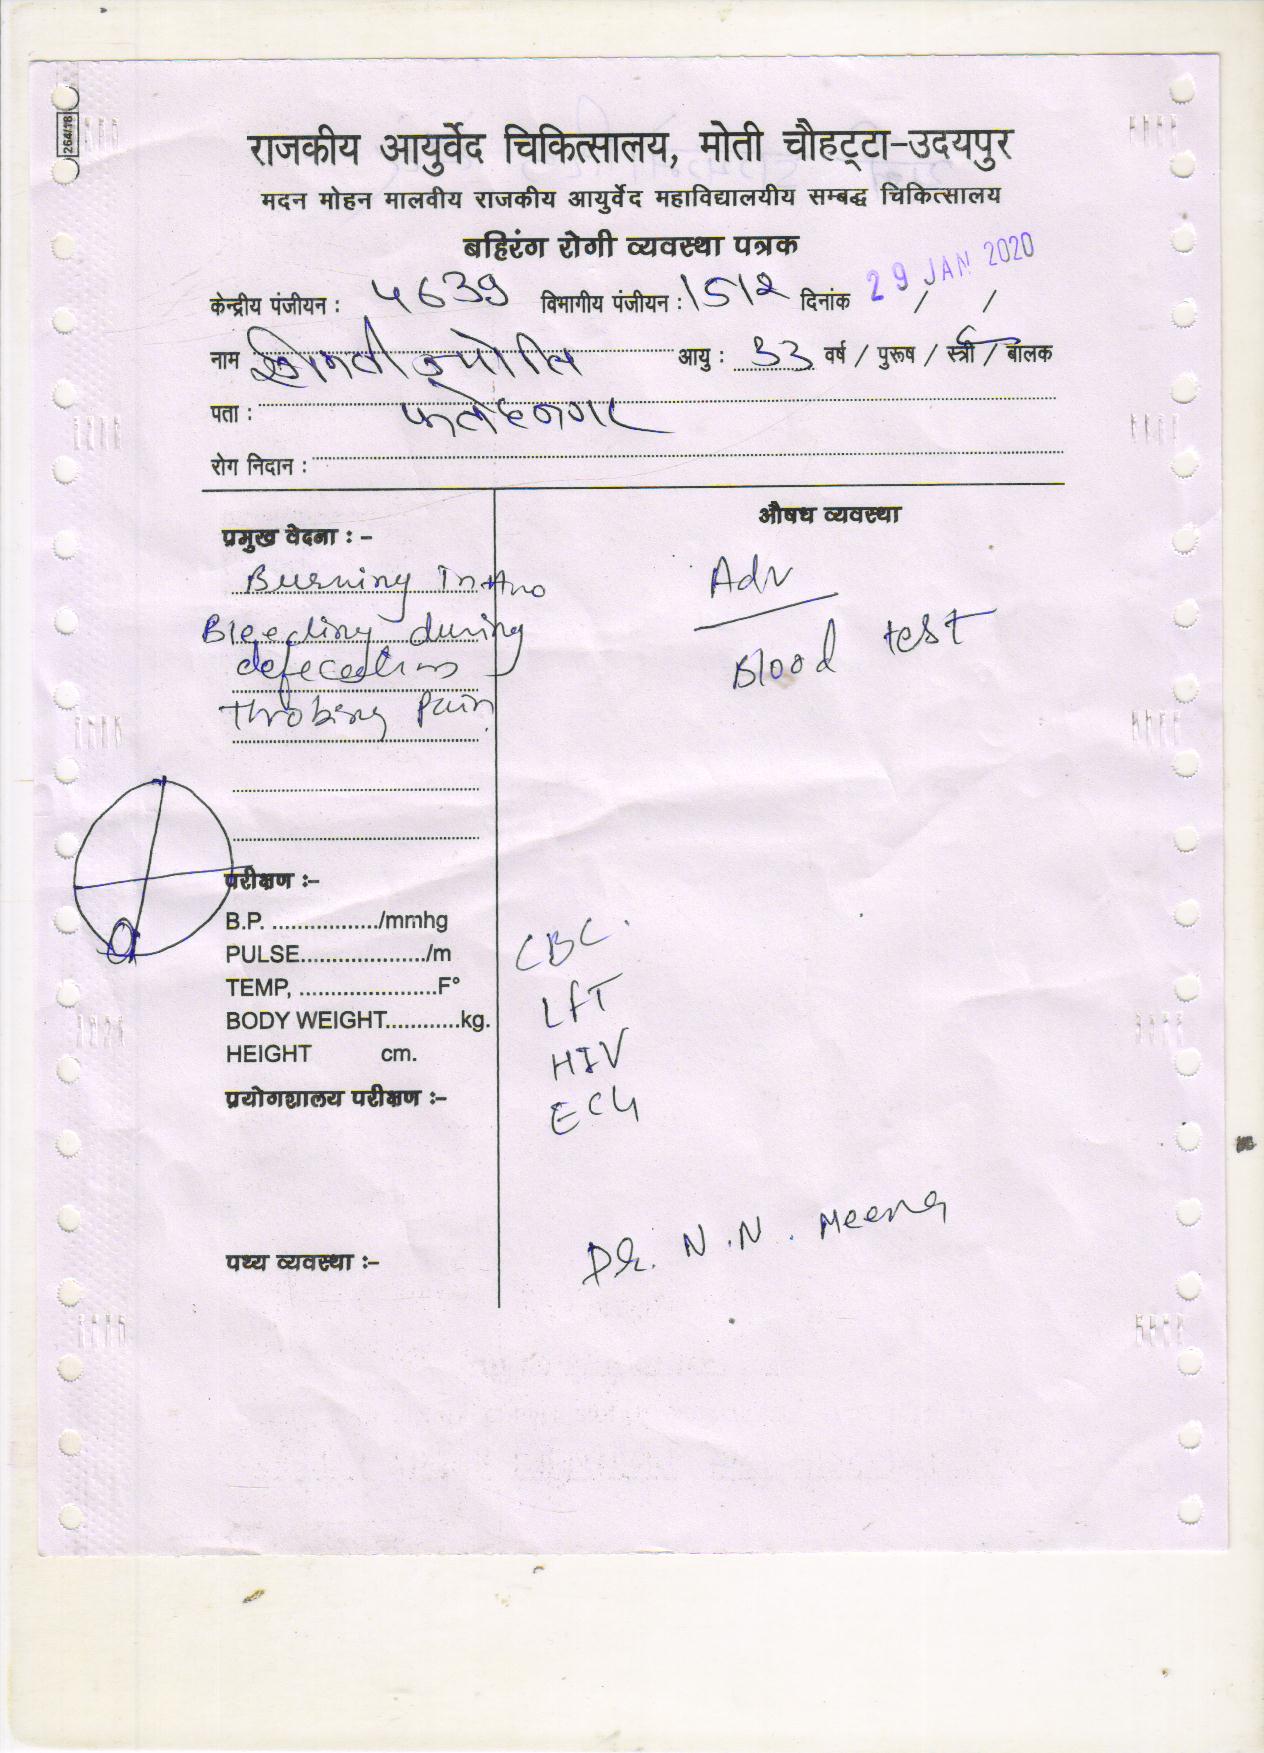 264/18
राजकीय आयुर्वेद चिकित्सालय, मोती चौहट्टा-उदयपुर
मदन मोहन मालवीय राजकीय आयुर्वेद महाविद्यालयीय सम्बद्ध चिकित्सालय
बहिरंग रोगी व्यवस्था पत्रक
केन्द्रीय पंजीयन : ५639 विभागीय पंजीयन : 1512 दिनांक 29 JAN 2020 / /
नाम श्रीमती ज्योति आयु : 33 वर्ष / पुरूष / स्त्री / बालक
पता : फतेहनगर
रोग निदान :
प्रमुख वेदना : -
Burning In Ano
Bleeding during
defecation
throbing Pain
परीक्षण :-
B.P. ................./mmhg
PULSE..................../m
TEMP, ......................F°
BODY WEIGHT............kg.
HEIGHT cm.
प्रयोगशालय परीक्षण :-
पथ्य व्यवस्था :-
औषध व्यवस्था
Adv
Blood test
CBC.
LFT
HIV
ECG
DR. N.N. Meena